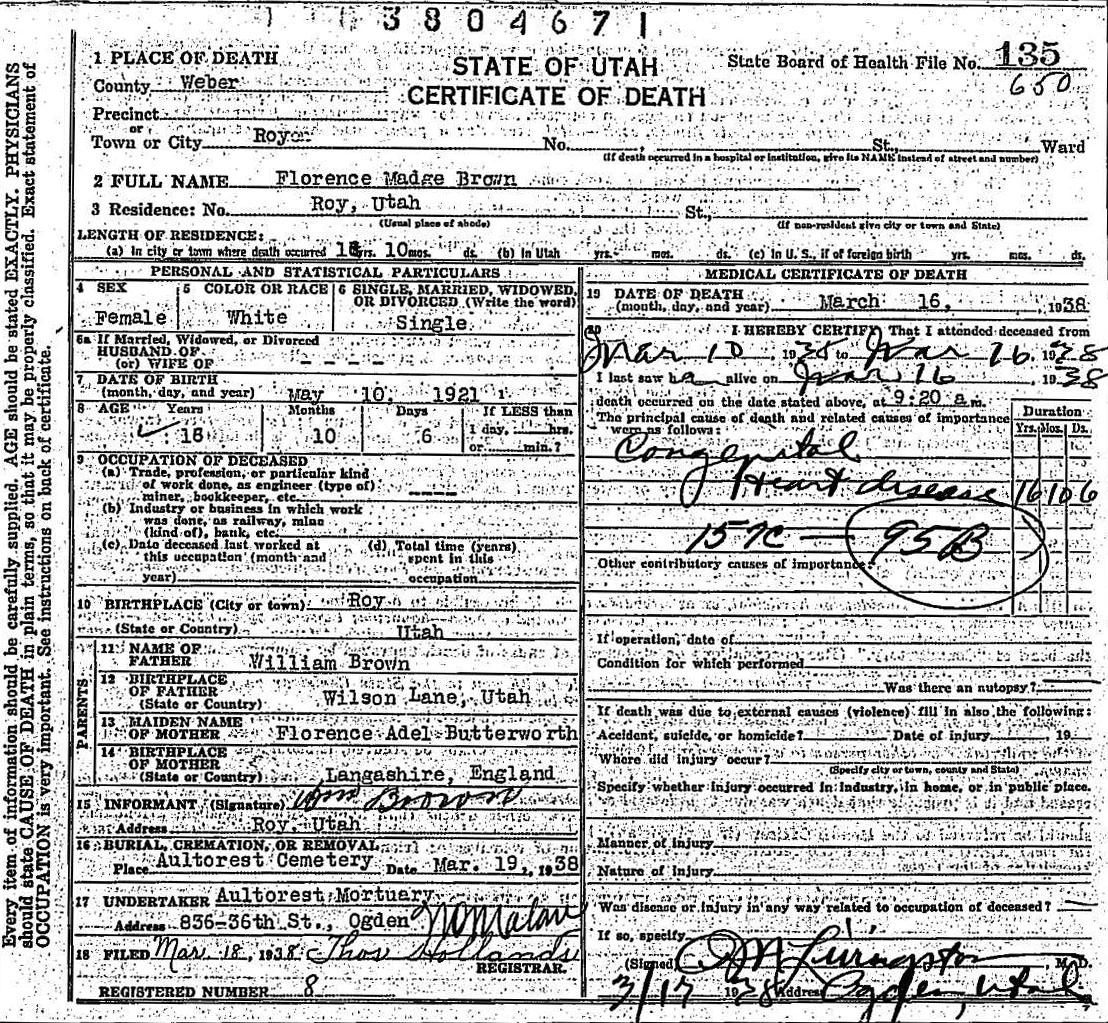 3804671
1 PLACE OF DEATH
STATE OF UTAH
State Board of Health File No. 135
County Weber
CERTIFICATE OF DEATH
650
Precinct
or
Town or City Roy No. St., Ward
(If death occurred in a hospital or institution, give its NAME instead of street and number)
2 FULL NAME Florence Madge Brown
3 Residence: No. Roy, Utah St.,
(Usual place of abode) (If non-resident give city or town and State)
LENGTH OF RESIDENCE:
(a) In city or town where death occurred yrs. 10 mos. ds. (b) In Utah yrs. mos. ds. (c) In U. S., if of foreign birth yrs. mos. ds.
PERSONAL AND STATISTICAL PARTICULARS
4 SEX
Female
5 COLOR OR RACE
White
6 SINGLE, MARRIED, WIDOWED,
OR DIVORCED (Write the word)
Single
6a If Married, Widowed, or Divorced
HUSBAND OF
(or) WIFE OF ----
7 DATE OF BIRTH
(month, day, and year) May 10, 1921
8 AGE Years Months Days If LESS than
1 day, hrs.
or min.?
10 6
9 OCCUPATION OF DECEASED
(a) Trade, profession, or particular kind
of work done, as engineer (type of)
miner, bookkeeper, etc. ----
(b) Industry or business in which work
was done, as railway, mine
(kind of), bank, etc.
(c) Date deceased last worked at
this occupation (month and
year)
(d) Total time (years)
spent in this
occupation
10 BIRTHPLACE (City or town) Roy
(State or Country) Utah
PARENTS
11 NAME OF
FATHER William Brown
12 BIRTHPLACE
OF FATHER
(State or Country) Wilson Lane, Utah
13 MAIDEN NAME
OF MOTHER Florence Adel Butterworth
14 BIRTHPLACE
OF MOTHER
(State or Country) Langashire, England
15 INFORMANT (Signature) Wm Brown
Address Roy, Utah
16 BURIAL, CREMATION, OR REMOVAL
Place Aultorest Cemetery Date Mar. 19, 1938
17 UNDERTAKER Aultorest Mortuary
Address 836-36th St., Ogden
18 FILED Mar. 18, 1938 Thos Hollands
REGISTRAR.
REGISTERED NUMBER 8
MEDICAL CERTIFICATE OF DEATH
19 DATE OF DEATH
(month, day, and year) March 16, 1938
20 I HEREBY CERTIFY That I attended deceased from
Mar 10, 1938 to Mar 16, 1938
I last saw h alive on Mar 16 1938
death occurred on the date stated above, at 9:20 a.m.
The principal cause of death and related causes of importance
were as follows:
Duration
Yrs. Mos. Ds.
Congenital
Heart disease 16 10 6
157C — 95B
Other contributory causes of importance:
If operation, date of
Condition for which performed
Was there an autopsy?
If death was due to external causes (violence) fill in also the following:
Accident, suicide, or homicide? Date of injury 19
Where did injury occur?
(Specify city or town, county and State)
Specify whether injury occurred in industry, in home, or in public place.
Manner of injury
Nature of injury
Was disease or injury in any way related to occupation of deceased? —
If so, specify
(Signed) Livingston M. D.
3/17 1938 Address Ogden, Utah
Every item of information should be carefully supplied. AGE should be stated EXACTLY. PHYSICIANS
should state CAUSE OF DEATH in plain terms, so that it may be properly classified. Exact statement of
OCCUPATION is very important. See instructions on back of certificate.